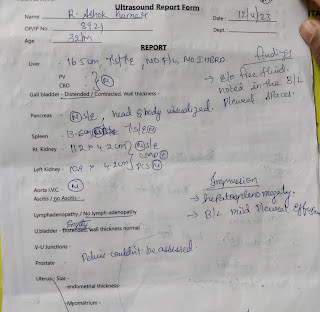 Ultrasound Report Form
Name : R. Ashok Kumar Date : 12/4/23
OP/IP No : 8421 Dept :
Age : 32/M
REPORT
Findings
Liver - 16.5cm, ↑S/↑E, NO F/L, NO IHBRD
PV
CBD } (N)
→ E/o free fluid
noted in the B/L
Pleural spaces.
Gall bladder - Distended / Contracted. Wall thickness -
Pancreas : (N) S/E, head & body visualized.
Spleen : 13.6cm ↑S/E(N)
Rt. Kidney - 11.2 x 4.2cm (N)S/E
CMD(N)
Left Kidney - 10.9 x 4.2cm PCS(N)
Aorta I.V.C. - (N)
Ascitis / no Ascitis -
Impression
→ hepatosplenomegaly.
Lymphadenopathy / No lymph-adenopathy
→ B/L mild Pleural effusion
Empty
U.bladder - Distended, wall thickness normal
V-U Junctions -
Pelvis couldn't be assessed.
Prostate -
Uterus - Size -
-endometrial thickness-
-Myometrium -